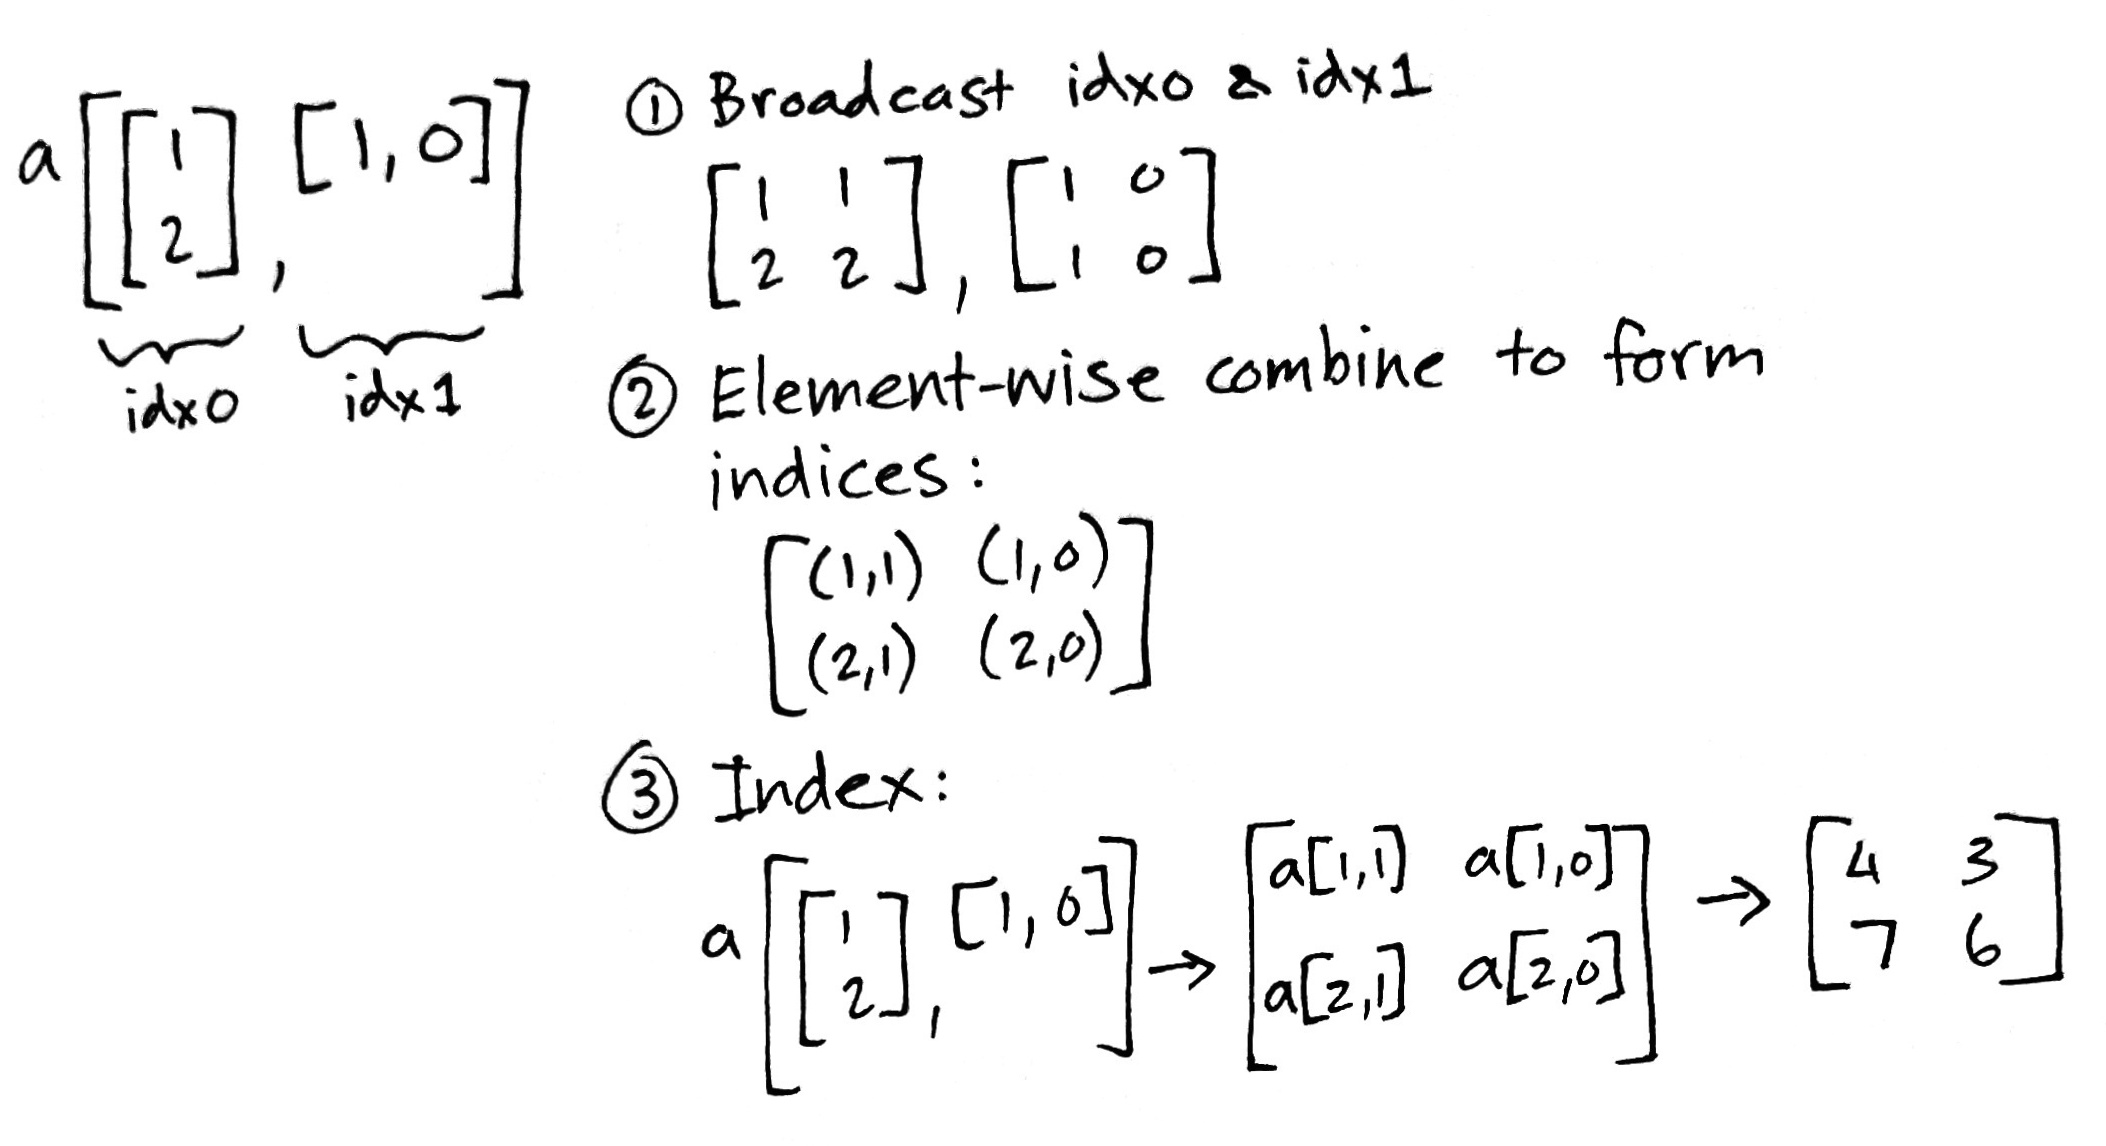 a[[1
2], [1, 0]]
idx0 idx1
① Broadcast idx0 & idx1
[1 1
2 2], [1 0
1 0]
② Element-wise combine to form
indices:
[(1,1) (1,0)
(2,1) (2,0)]
③ Index:
a[[1
2], [1, 0]] → [a[1,1] a[1,0]
a[2,1] a[2,0]] → [4 3
7 6]